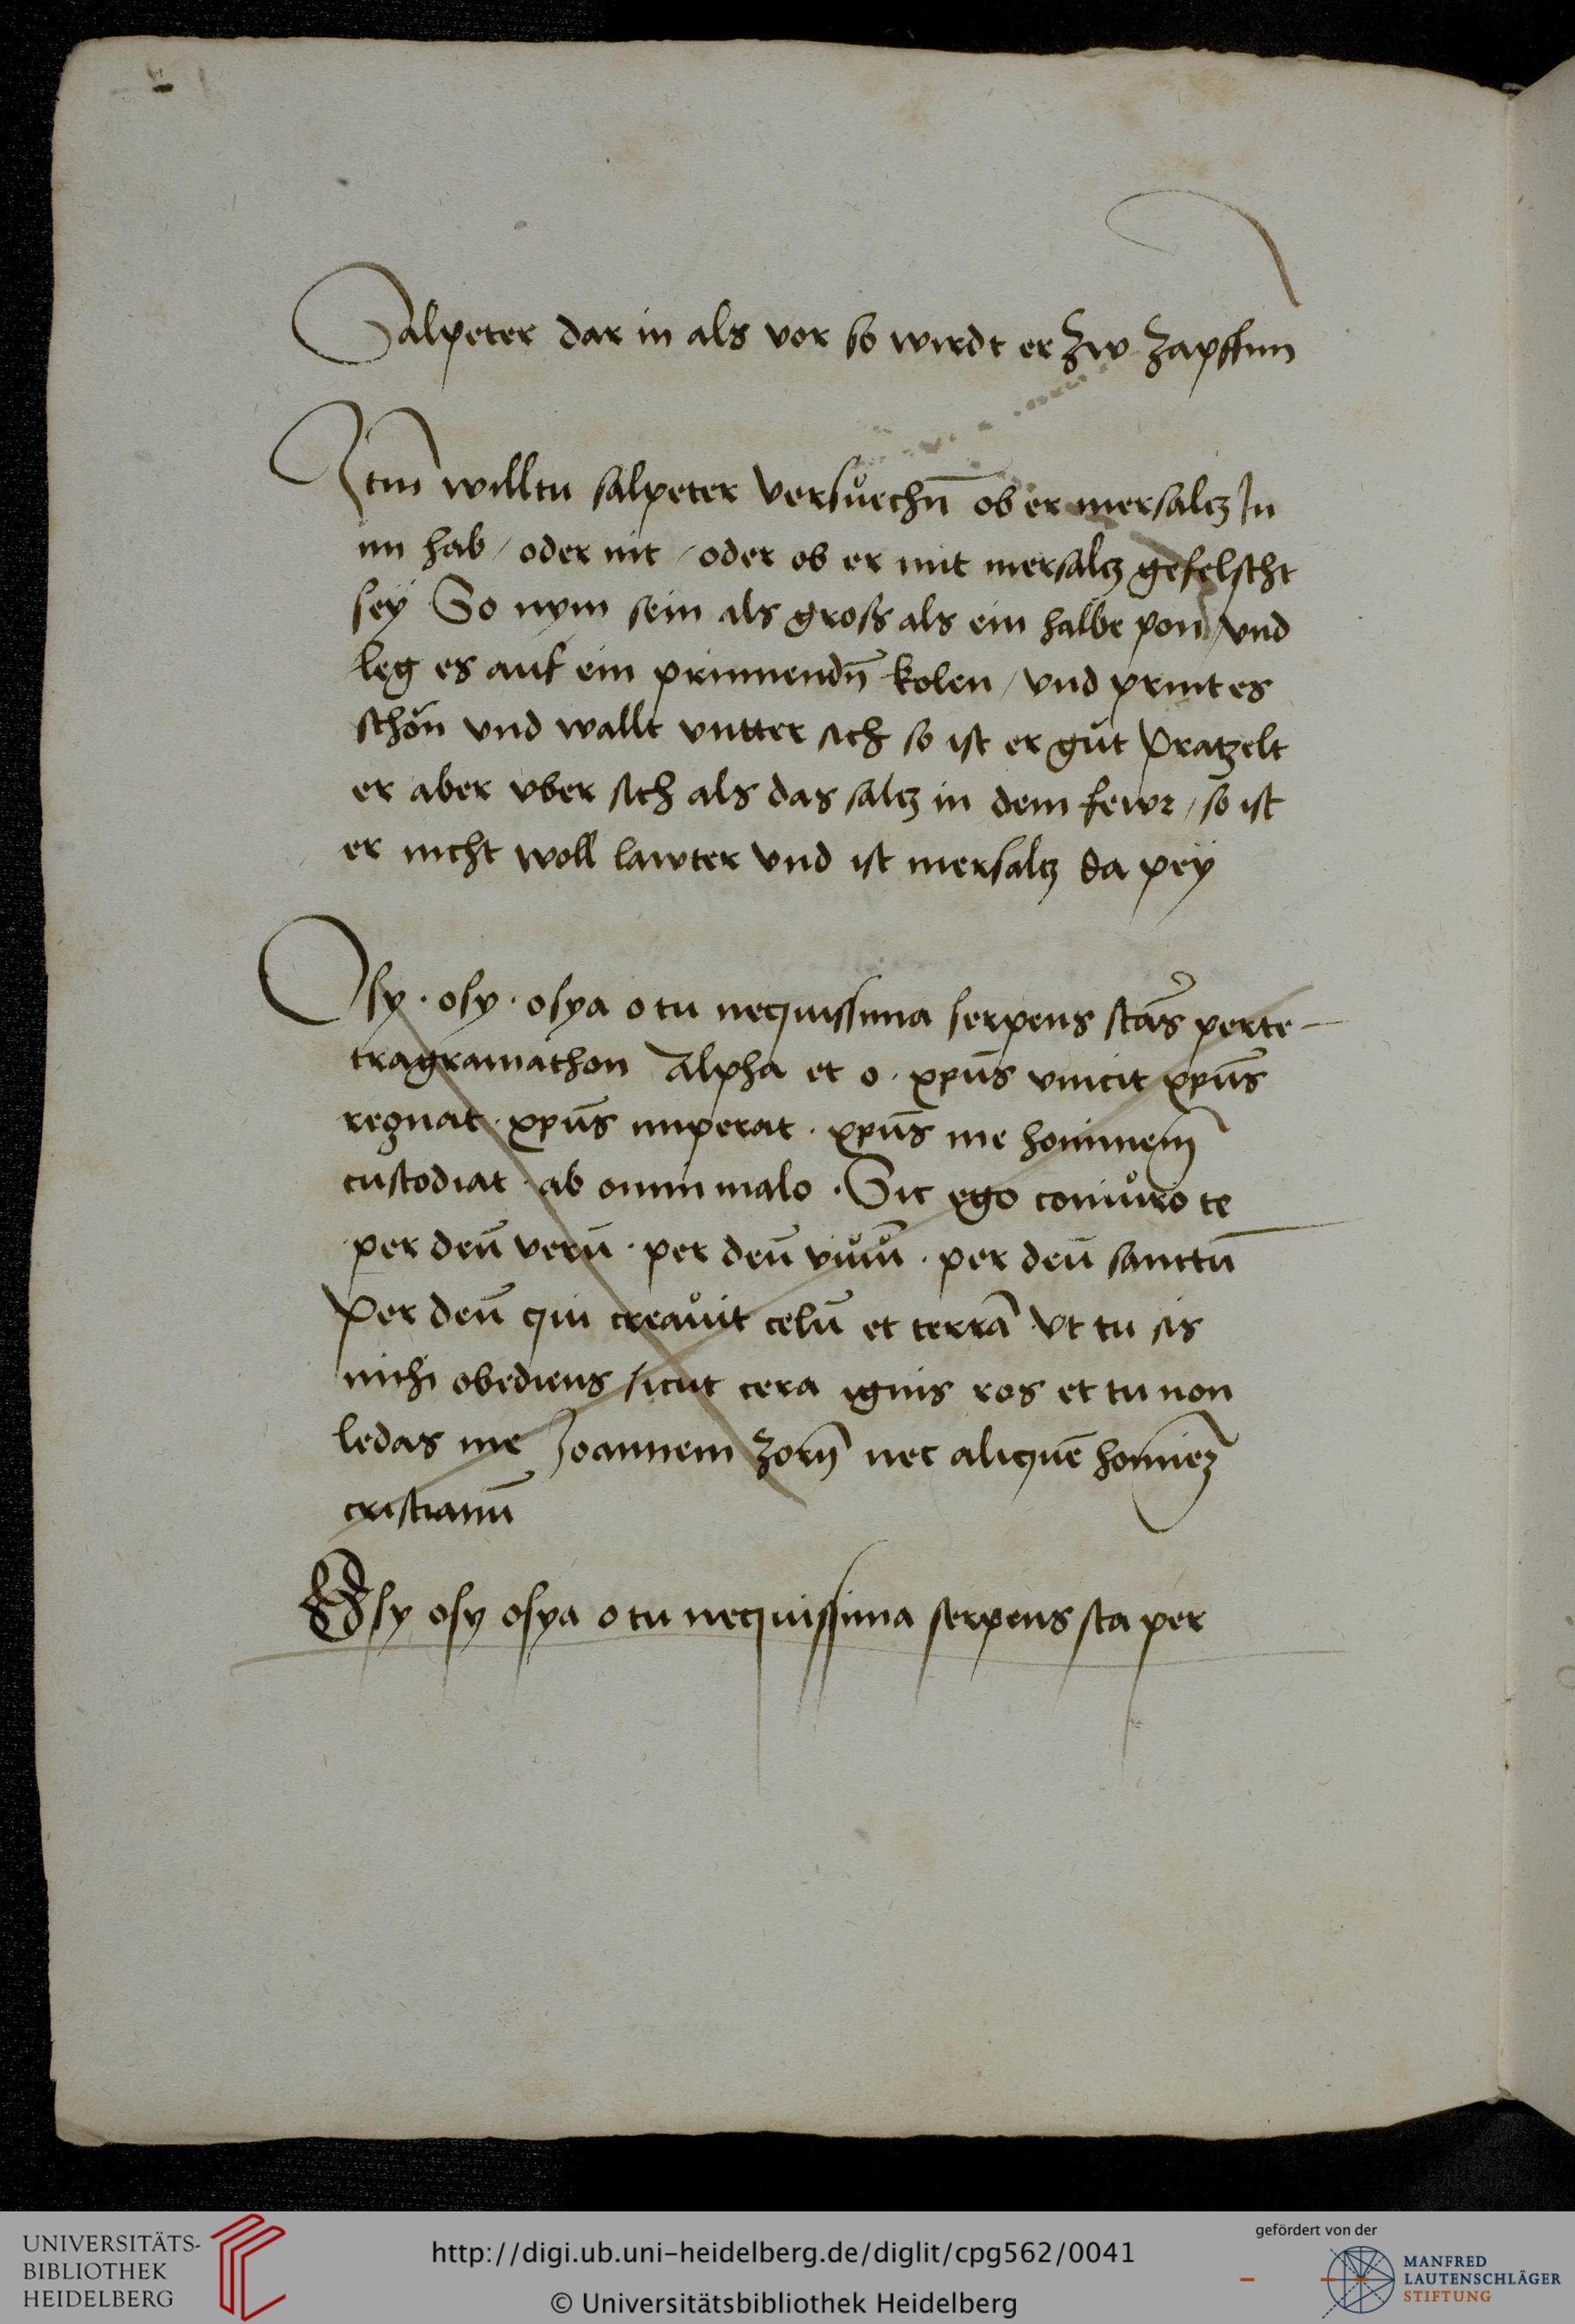 Salpeter dar in als vor so wirdt er zw zapffnn
Itm̄ willtu salpeter versůechn̄ ob er mersaltz In
im hab / oder nit / oder ob er mit mersaltz gefelscht
seÿ So nym sein als gross als ein halbe pon / vnd
leg es auf ein prinnendn̄ kolen / vnd print es
schön vnd wallt vntter sich so ist er gůt pratzelt
er aber vber sich als das saltz in dem fewr / so ist
er nicht woll lawter vnd ist mersaltz da peÿ
Osy · osy · osya o tu nequissima serpens stās per te-
tragramathon Alpha et o · xpūs vincit xpūs
regnat · xpūs imperat · xpūs me hominem
custodiat · ab omni malo · Sic ego coniůro te
per deū verū · per deū viůū · per deū sanctū
per deū qui creaůit celū et terrā Vt tu sis
michi obediens sicut cera ignis ros et tu non
ledas me Joannem zorn̄ nec aliquē homiēz
cristianū
Osy osy osya o tu nequissima serpens sta per
UNIVERSITÄTS-
BIBLIOTHEK
HEIDELBERG
http://digi.ub.uni-heidelberg.de/diglit/cpg562/0041
© Universitätsbibliothek Heidelberg
gefördert von der
MANFRED
LAUTENSCHLÄGER
STIFTUNG